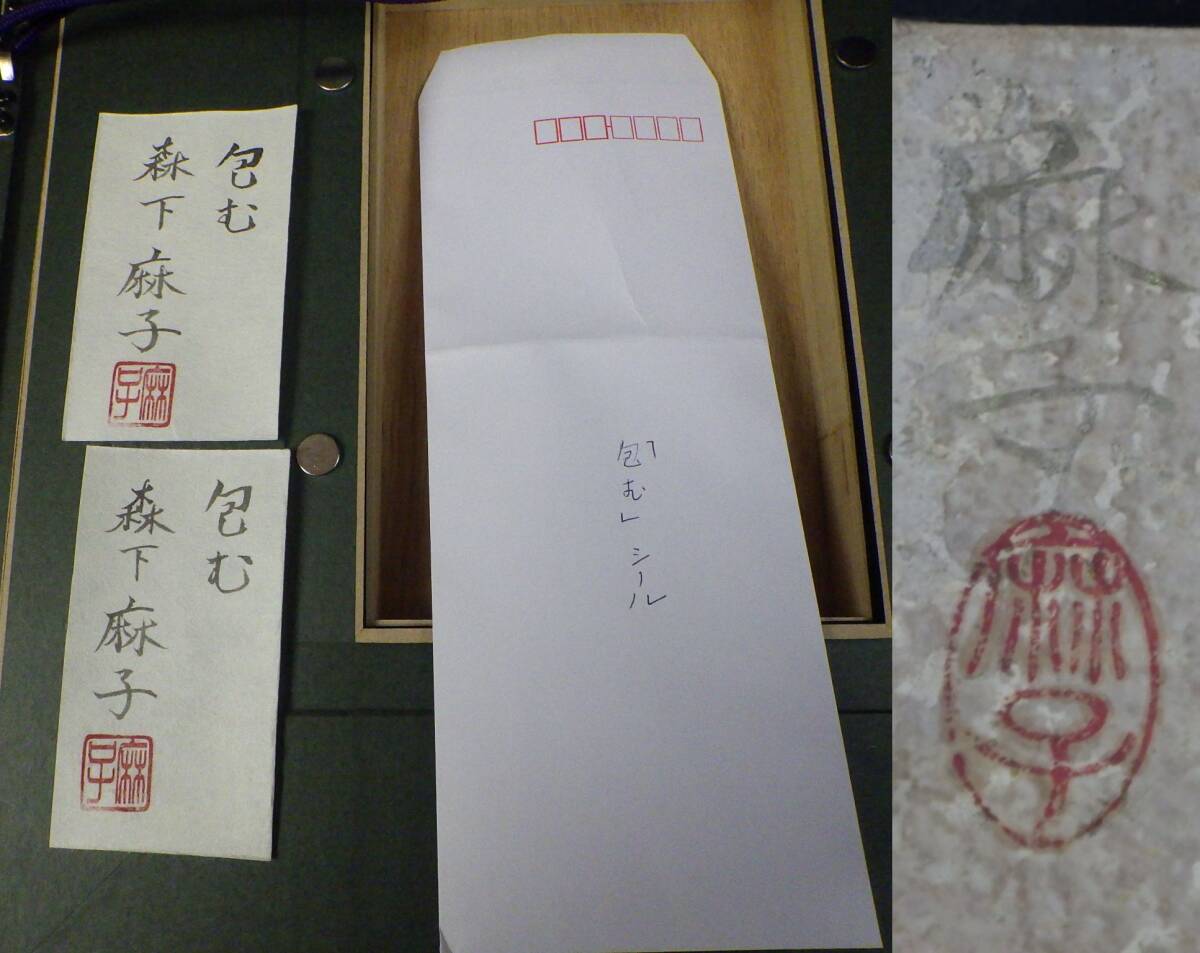 包む
森下麻子
麻子
包む
森下麻子
麻子
「包む」シール
麻子
麻子